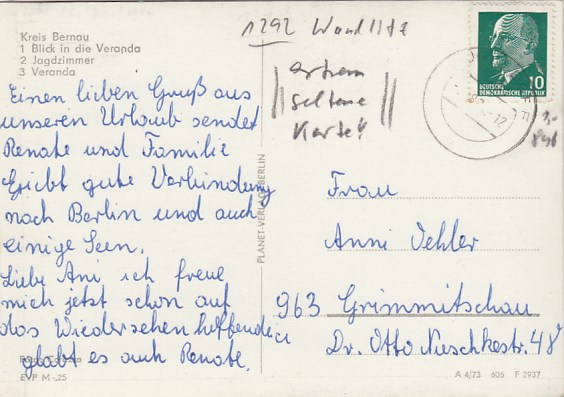 Kreis Bernau
1 Blick in die Veranda
2 Jagdzimmer
3 Veranda
Einen lieben Gruß aus
unseren Urlaub sendet
Renate und Familie
gute Verbindung
nach Berlin und auch
einige Seen.
Liebe Ani ich freue
mich jetzt schon auf
das Wiedersehen hoffendlich
es auch Renate.
EVP M -,25
1292 Wandlitz
extrem
seltene
Karte!!
PLANET-VERLAG BERLIN
DEUTSCHE
DEMOKRATISCHE REPUBLIK
10
Frau
Anni Oehler
963 Crimmitschau
Dr. Otto Nuschkestr. 48
A 4/73 606 F 2937